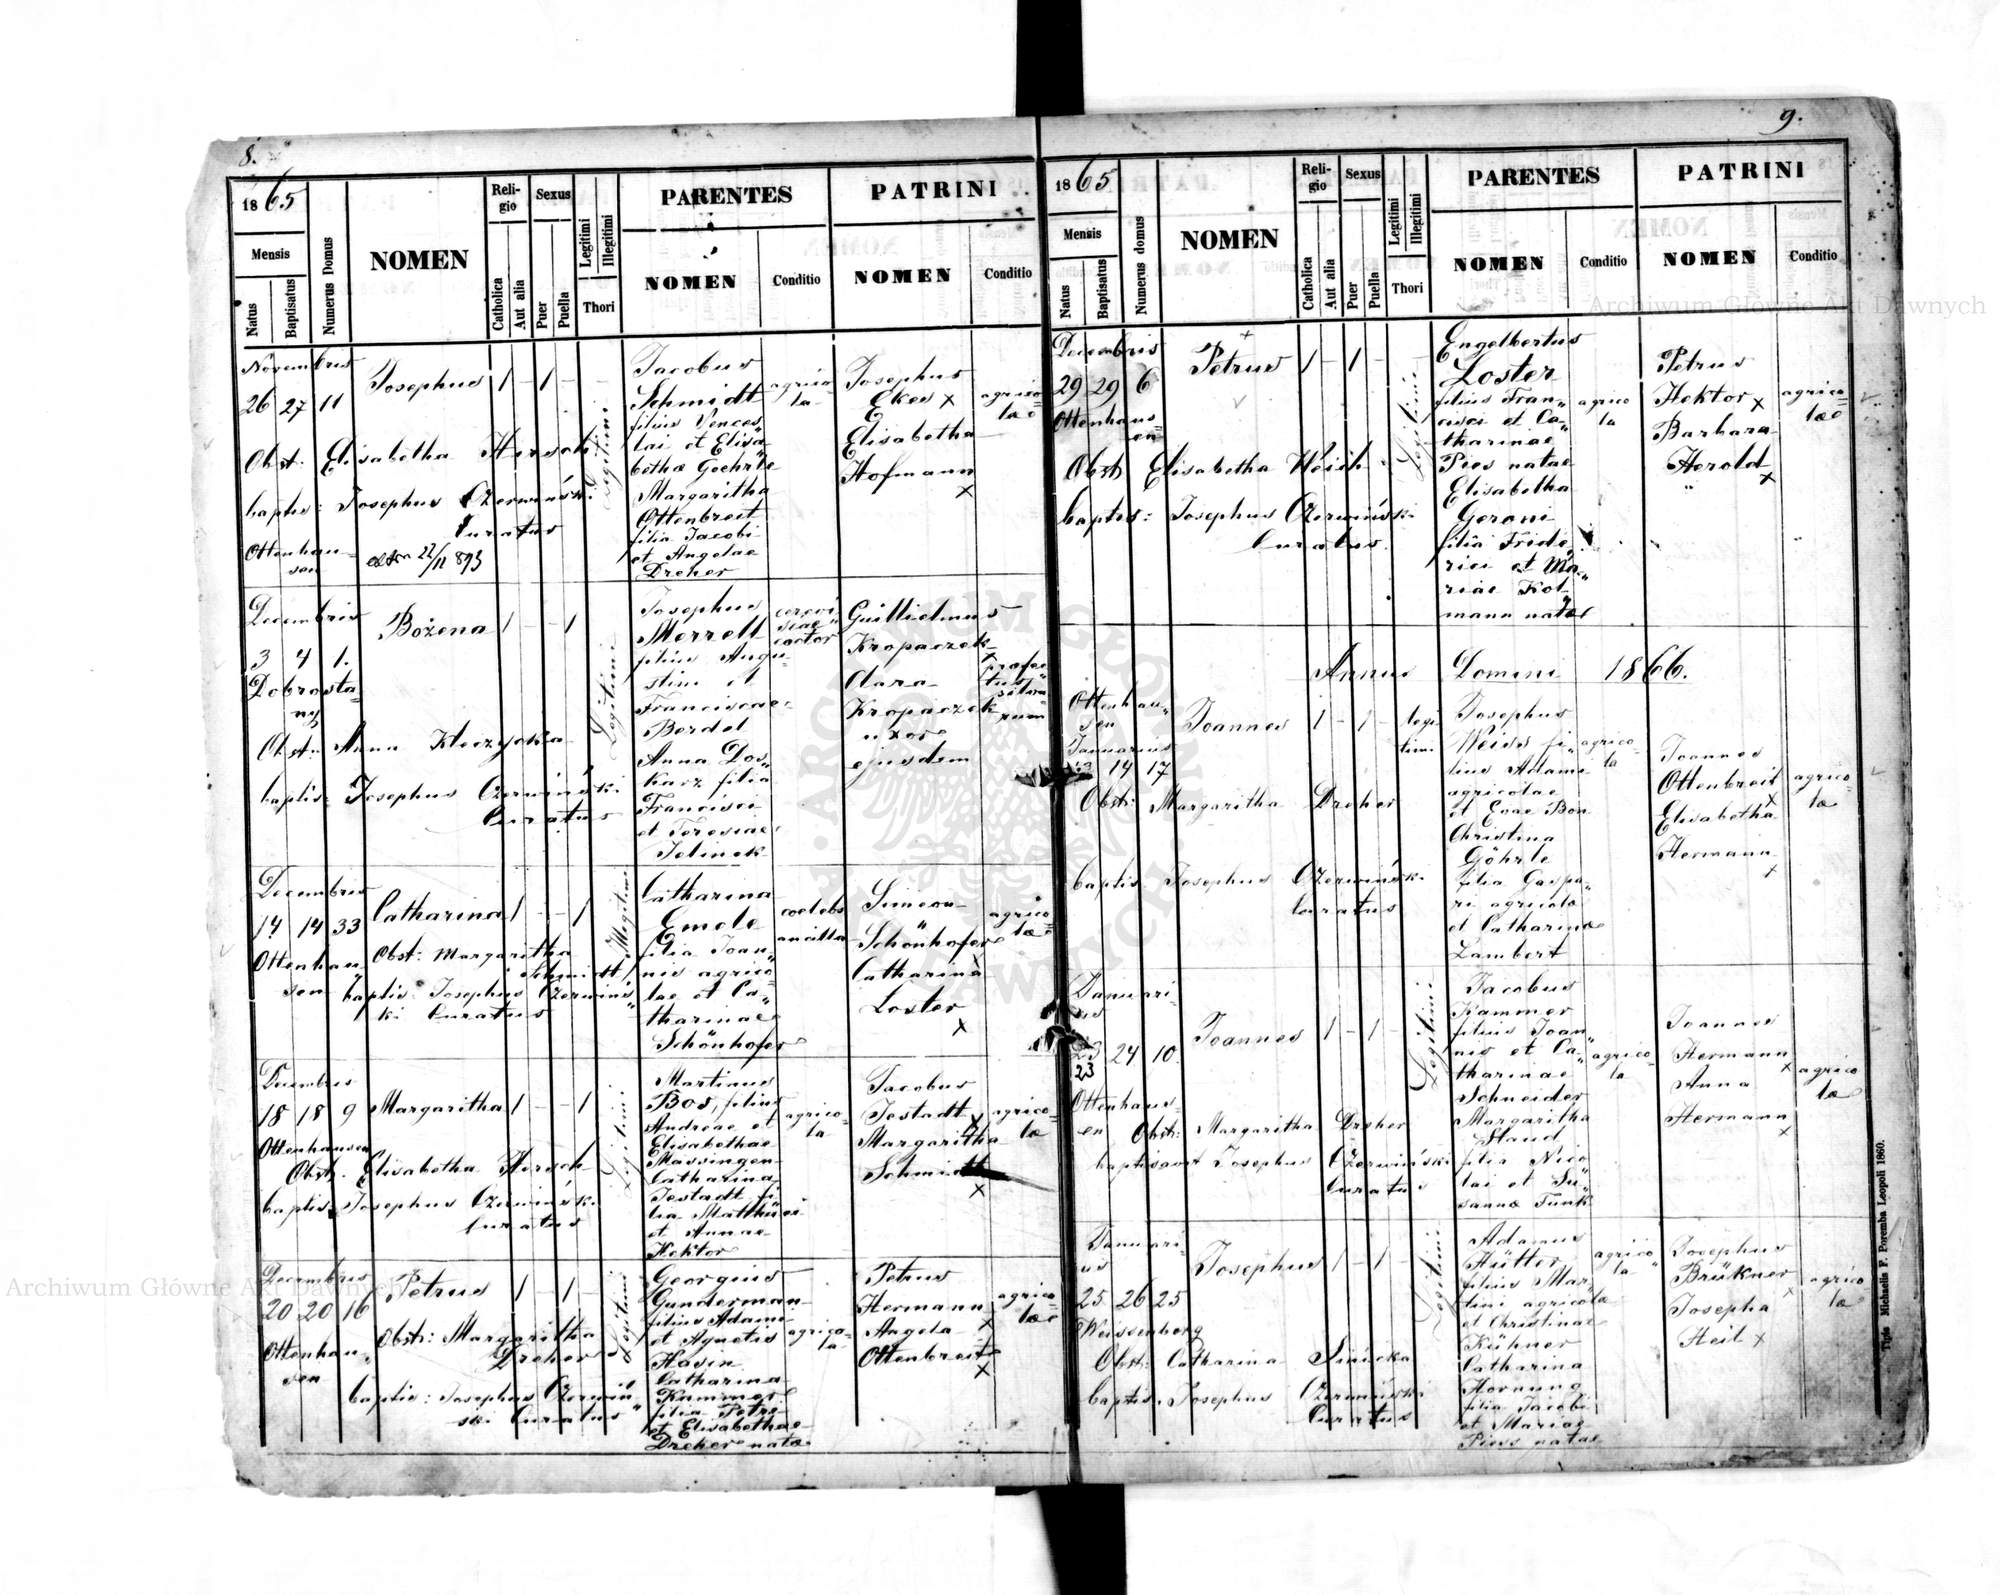 8.
1865
Mensis
Natus
Baptisatus
Numerus Domus
NOMEN
Reli-
gio
Catholica
Aut alia
Sexus
Puer
Puella
Legitimi
Illegitimi
Thori
PARENTES
NOMEN
Conditio
PATRINI
NOMEN
Conditio
Novembris
26 27 11
Josephus 1 - 1 -
Obst. Elisabetha Hersch
baptis: Josephus Czerwiński
Curatus
Ottenhau-
sen
extra 22/11 893
Legitimi
Jacobus
Schmidt
filius Vences„
lai et Elisa„
bethæ Goehrle
Margaritha
Ottenbreit
filia Jacobi
et Angelae
Dreher
agrico-
la
Josephus
Ekes x
Elisabetha
Hofmann
x
agrico-
lae
Decembris
3 4 1.
Dobrosta-
ny
Božena 1 - - 1
Obst: Anna Kleczycka
baptis: Josephus Czerwiński
Curatus
Legitimi
Josephus
Merrell
filius Augu-
stini et
Franciscae
Berdel
Anna Dos„
karz filia
Francisci
et Teresiae
Jelinek
cerevi
siae
coctor
Guillielmus
Kropaczek
x
Clara
Kropaczek
uxor
ejusdem
præfec
tus
silva
rum
Decembris
14 14 33
Catharina 1 - - 1
Ottenhau„
sen
Obst: Margaritha
Schmidt
baptis: Josephus Czerwiń„
ski Curatus
Illegitimi
Catharina
Emele
filia Joan„
nis agrico„
lae et Ca„
tharinae
Schönhofer
coelebs
ancilla
Simeon
Schönhofer
x
Catharina
Loster
x
agrico
lae
Decembris
18 18 9
Margaritha 1 - - 1
Ottenhausen
Obst. Elisabetha Hersch
baptis: Josephus Czerwiński
Curatus
Legitimi
Martinus
Bos, filius
Andreae et
Elisabethae
Massingen
Catharina
Jestadt fi„
lia Matthaei
et Annae
Hektor
agrico-
la
Jacobus
Jestadt x
Margaritha
Schmidt
x
agrico-
læ
Decembris
20 20 16
Petrus 1 - 1 -
Ottenhau„
sen
Obst: Margaritha
Dreher
baptis: Josephus Czerwiń„
ski Curatus
Legitimi
Georgius
Gunderman
filius Adami
et Agnetis
Hasin
Catharina
Kammer
filia Petri
et Elisabethae
Dreher natæ
agrico-
la
Petrus
Hermann
x
Angela
Ottenbreit
x
agrico-
lae
9.
1865
Mensis
Natus
Baptisatus
Numerus domus
NOMEN
Reli-
gio
Catholica
Aut alia
Sexus
Puer
Puella
Legitimi
Illegitimi
Thori
PARENTES
NOMEN
Conditio
PATRINI
NOMEN
Conditio
Decembris
29 29 6
Petrus 1 - 1 -
Ottenhaus
en
Obst Elisabetha Weich
baptis: Josephus Czerwiński
Curatus.
Legitimi
Engelbertus
Loster
filius Fran-
cisci et Ca-„
tharinae
Pies natae
Elisabetha
Geroni
filia Fride„
rici et Ma-„
riae Kol„
mann natæ
agrico
la
Petrus
Hektor x
Barbara
Herold
x
agrico-
læ
Annus Domini 1866.
Ottenhau„
sen
Januarius
14 17
Joannes 1 - 1 -
legi
timi
Obst: Margaritha Dreher
baptis. Josephus Czerwiński
Curatus
Josephus
Weiss fi„
lius Adami
agricolae
et Evae Bon
Christina
Göhrle
filia Gaspa-
ri agricolæ
et Catharinæ
Lambert
agrico-
la
Joannes
Ottenbreit
x
Elisabetha
Hermann
x
agrico
læ
Januari-
us
23 24 10.
23
Joannes 1 - 1 -
Ottenhaus-
en Obst: Margaritha Dreher
baptisavit Josephus Czerwiński
Curatus
Legitimi
Jacobus
Kammer
filius Joan„
nis et Ca-„
tharinae
Schneider
Margaritha
Staud
filia Nico
lai et Su„
sannæ Funk
agrico
la
Joannes
Hermann
x
Anna
Hermann
x
agrico
læ
Januari-
us
25 26 25
Josephus 1 - 1 -
Weissenberg
Obst: Catharina Sinicka
baptis. Josephus Czerwiński
Curatus
Legitimi
Adamus
Hütter
filius Mar„
tini agricolæ
et Christinae
Kühner
Catharina
Hornung
filia Jacobi
et Mariae
Piess natae
agrico
la
Josephus
Brükner
x
Josepha
Heil x
agrico
læ
Typis Michaelis F. Poremba Leopoli 1860.
Archiwum Główne Akt Dawnych
Archiwum Główne Akt Dawnych
ARCHIWUM GŁÓWNE AKT DAWNYCH